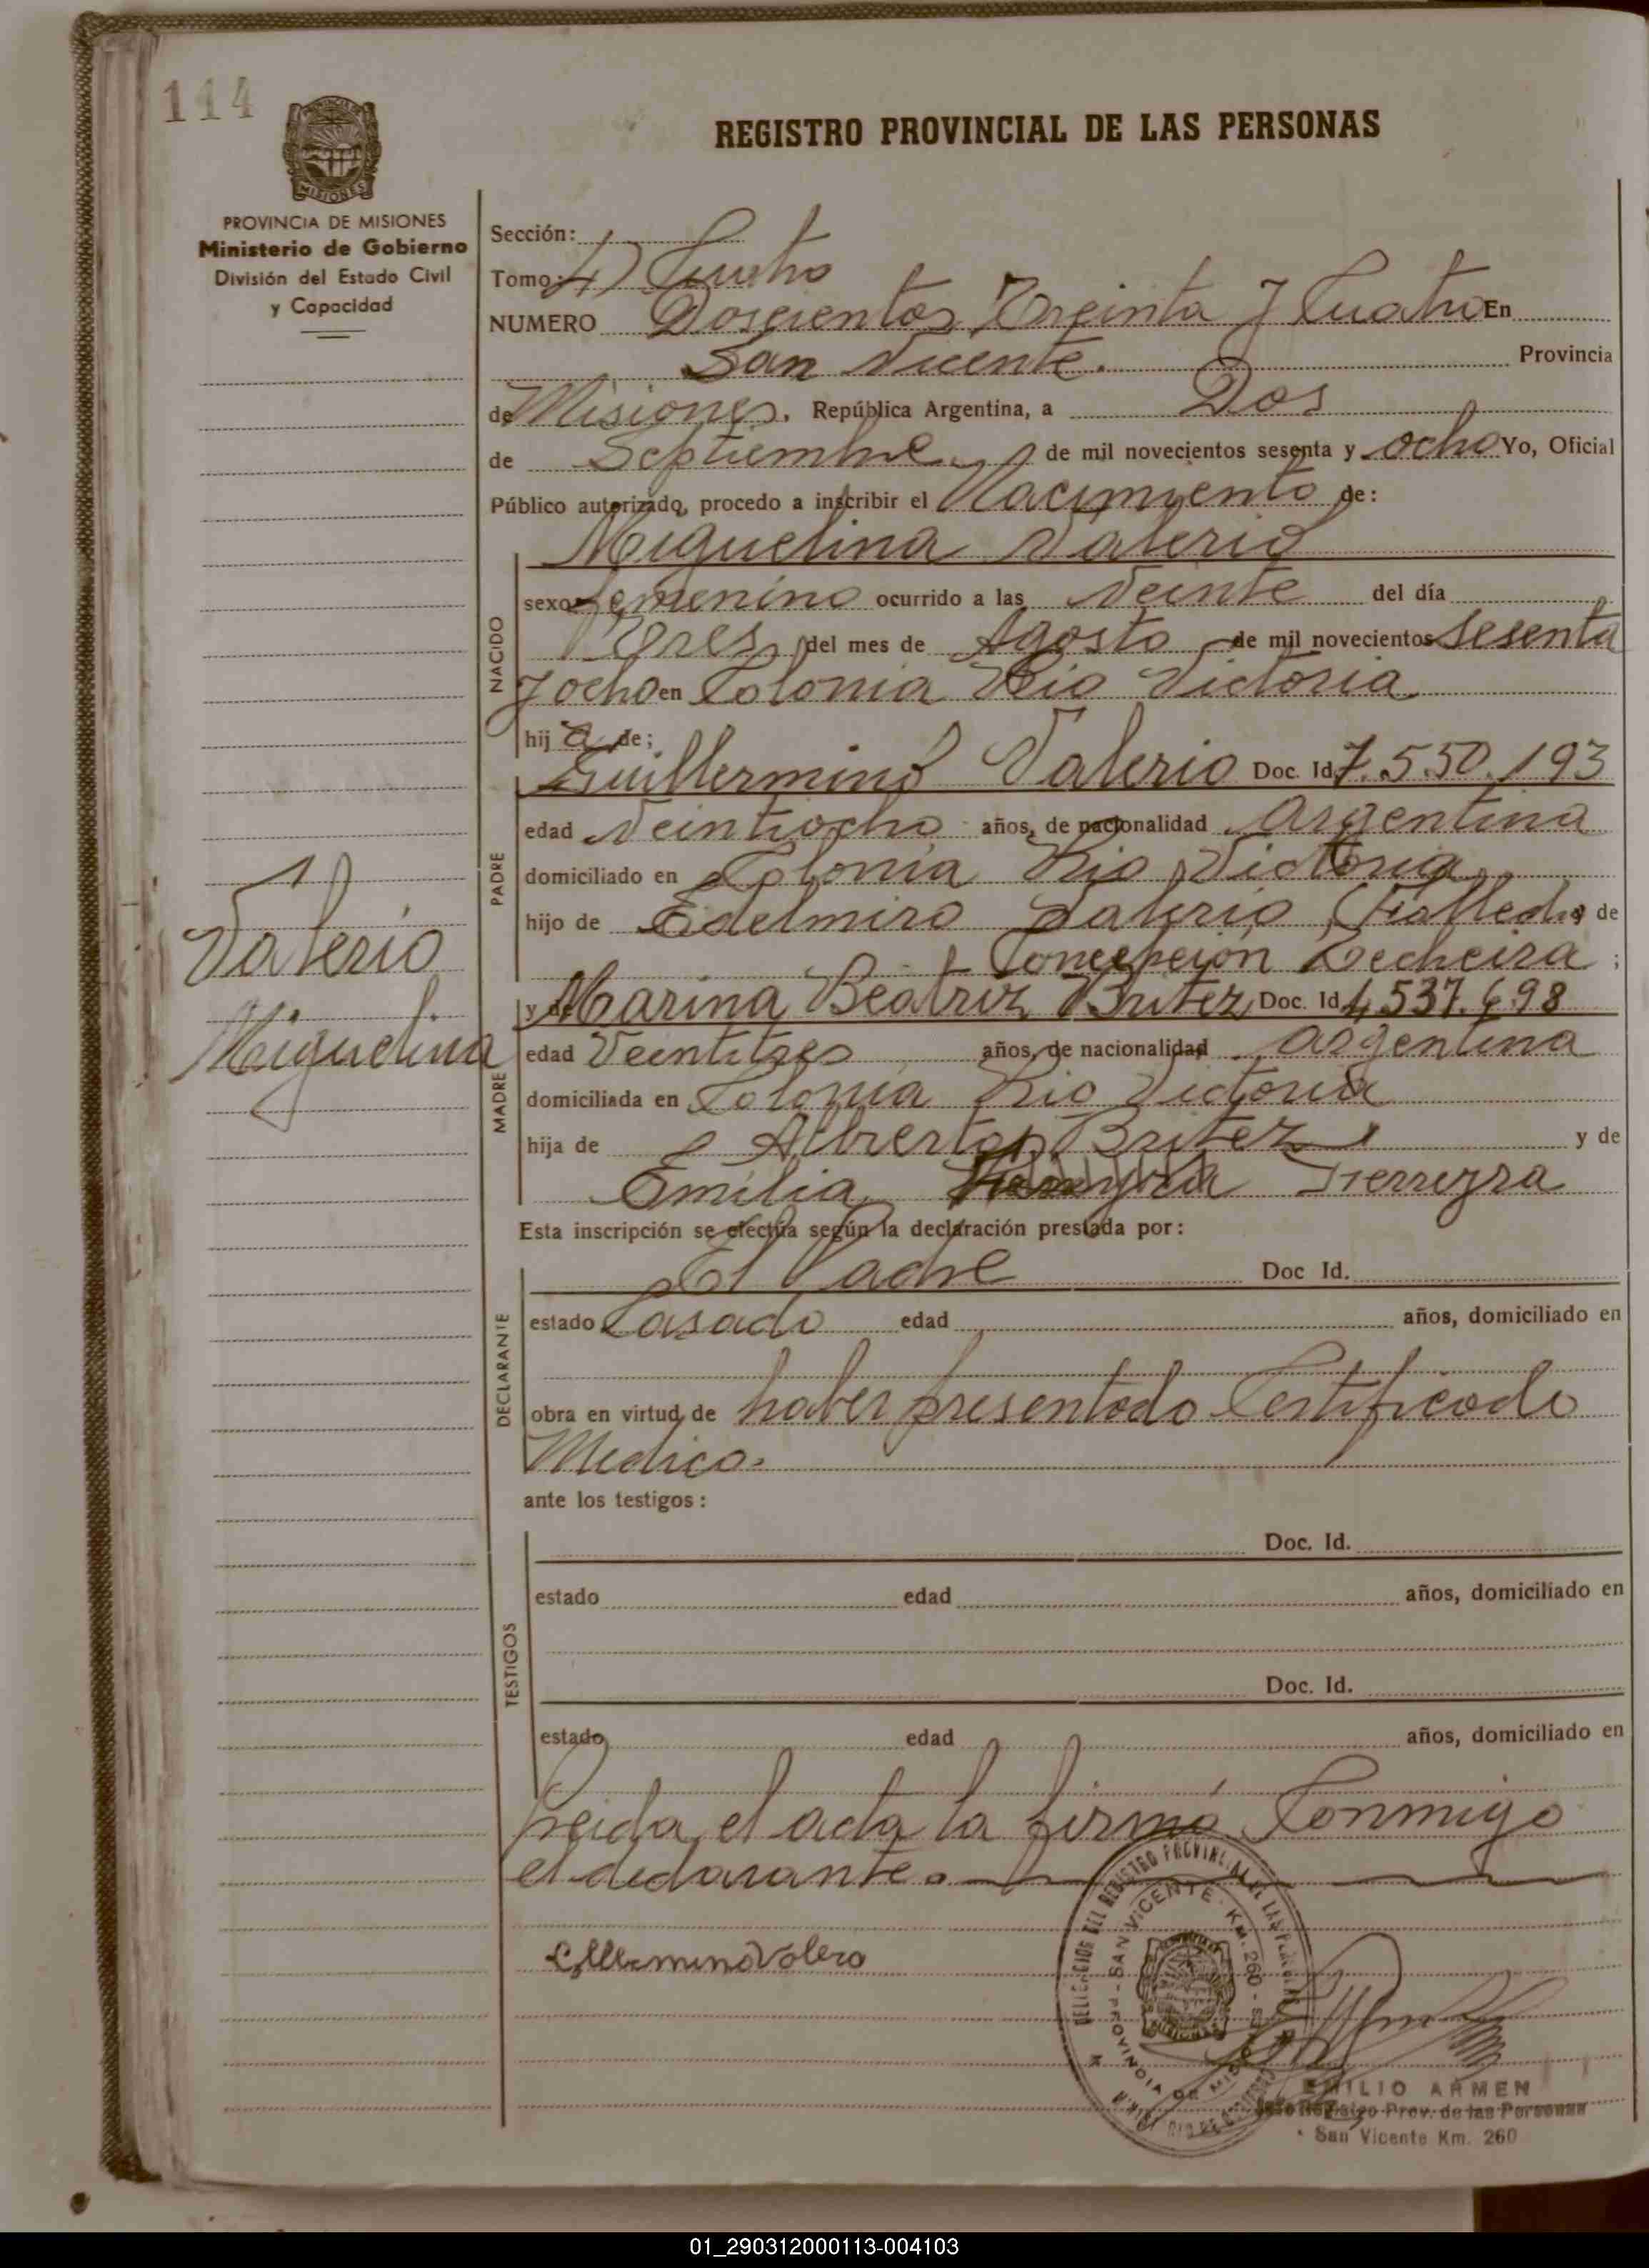 114
REGISTRO PROVINCIAL DE LAS PERSONAS
PROVINCIA DE MISIONES
Ministerio de Gobierno
División del Estado Civil
y Capacidad
Sección:
Tomo: 4)
NUMERO Doscientos Treinta y Cuatro En
San Vicente. Provincia
de Misiones. República Argentina, a Dos
de Septiembre de mil novecientos sesenta y ocho Yo, Oficial
Público autorizado, procedo a inscribir el Nacimiento de:
Miguelina Valerio
NACIDO
sexo femenino ocurrido a las Veinte del día
Tres del mes de Agosto de mil novecientos Sesenta
y ocho en Colonia Rio Victoria
hij a de;
Guillermino Valerio Doc. Id 7.550.193
PADRE
edad Veintiocho años, de nacionalidad Argentina
domiciliado en Colonia Rio Victoria
hijo de Edelmiro Valerio (Fallecido y de
Concepcion Becheira ;
Valerio
Miguelina
y de Marina Beatriz Britez Doc. Id 4,537.698
MADRE
edad Veintitres años, de nacionalidad argentina
domiciliada en Colonia Rio Victoria
hija de Alberto Britez y de
Emilia Ferreyra
Esta inscripción se efectúa según la declaración prestada por:
El Padre Doc Id.
DECLARANTE
estado Casado edad años, domiciliado en
obra en virtud de haber presentado Certificado
Medico.
ante los testigos:
Doc. Id.
TESTIGOS
estado edad años, domiciliado en
Doc. Id.
estado edad años, domiciliado en
Leida el acta la firmó Conmigo
el declarante.
DEL REGISTRO PROVINCIAL DE LAS PERSONAS
SAN VICENTE - Km. 260
PROVINCIA DE MISIONES
EMILIO ARMEN
Jefe Registro Prov. de las Personas
San Vicente Km. 260
01_290312000113-004103